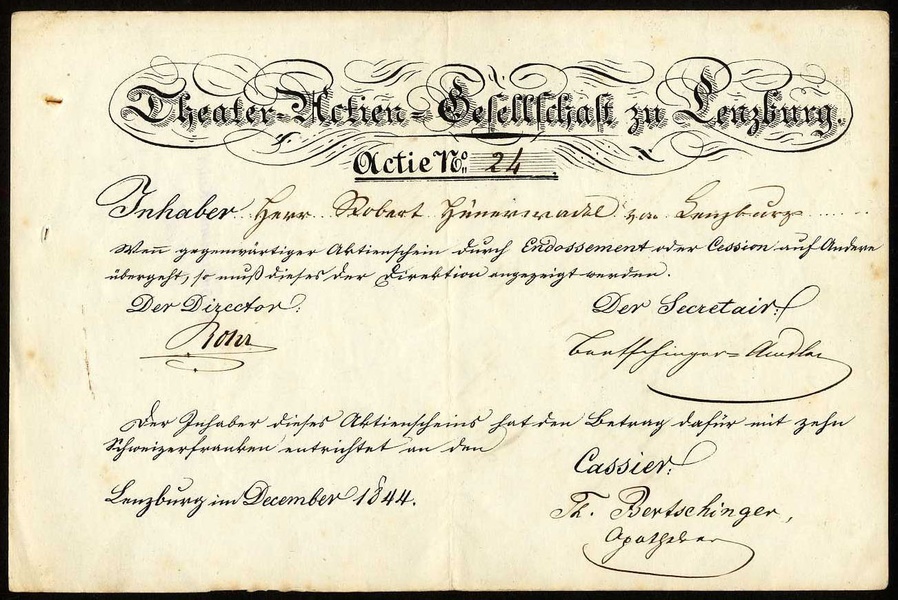 Theater-Actien-Gesellschaft zu Lenzburg.
Actie No. 24.
Inhaber Herr Robert Hünerwadel von Lenzburg
Wenn gegenwärtiger Aktienschein durch Endossement oder Cession auf Andere
übergeht, so muß dieses der Direktion angezeigt werden.
Der Director:
Der Secretair:
Rohr
Bertschinger-Amsler
Der Inhaber dieses Aktienscheins hat den Betrag dafür mit zehn
Schweizerfranken entrichtet an den
Cassier:
Lenzburg im December 1844.
Th. Bertschinger,
Apotheker